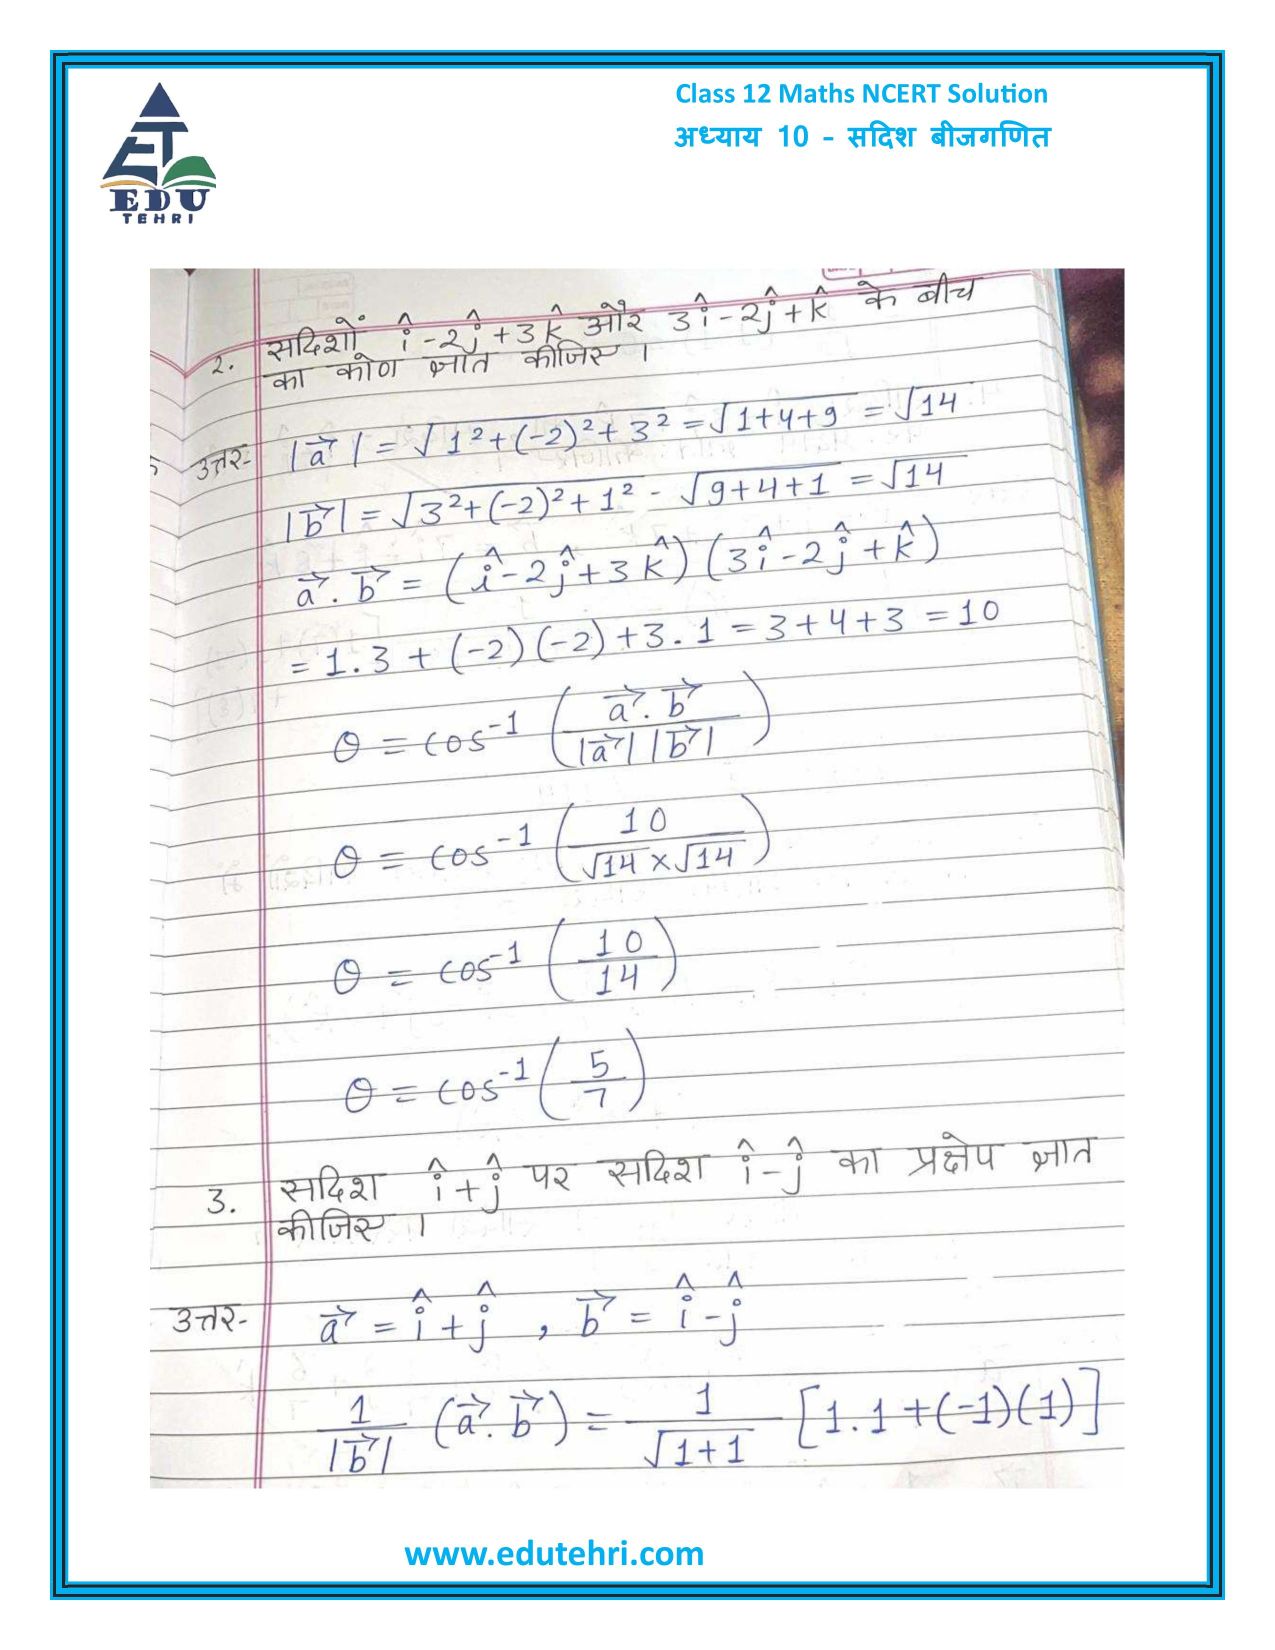 Class 12 Maths NCERT Solution
अध्याय 10 - सदिश बीजगणित
EDU
TEHRI
2. सदिशों î-2ĵ+3k̂ और 3î-2ĵ+k̂ के बीच
का कोण ज्ञात कीजिए ।
उत्तर- |a⃗| = √1²+(-2)²+3² = √1+4+9 = √14
|b⃗| = √3²+(-2)²+1² - √9+4+1 = √14
a⃗.b⃗ = (î-2ĵ+3k̂)(3î-2ĵ+k̂)
= 1.3 + (-2)(-2)+3.1 = 3+4+3 = 10
θ = cos⁻¹ (a⃗.b⃗ / |a⃗||b⃗|)
θ = cos⁻¹ (10 / √14×√14)
θ = cos⁻¹ (10/14)
θ = cos⁻¹ (5/7)
3. सदिश î+ĵ पर सदिश î-ĵ का प्रक्षेप ज्ञात
कीजिए ।
उत्तर- a⃗ = î+ĵ , b⃗ = î-ĵ
1/|b⃗| (a⃗.b⃗) = 1/√1+1 [1.1+(-1)(1)]
www.edutehri.com